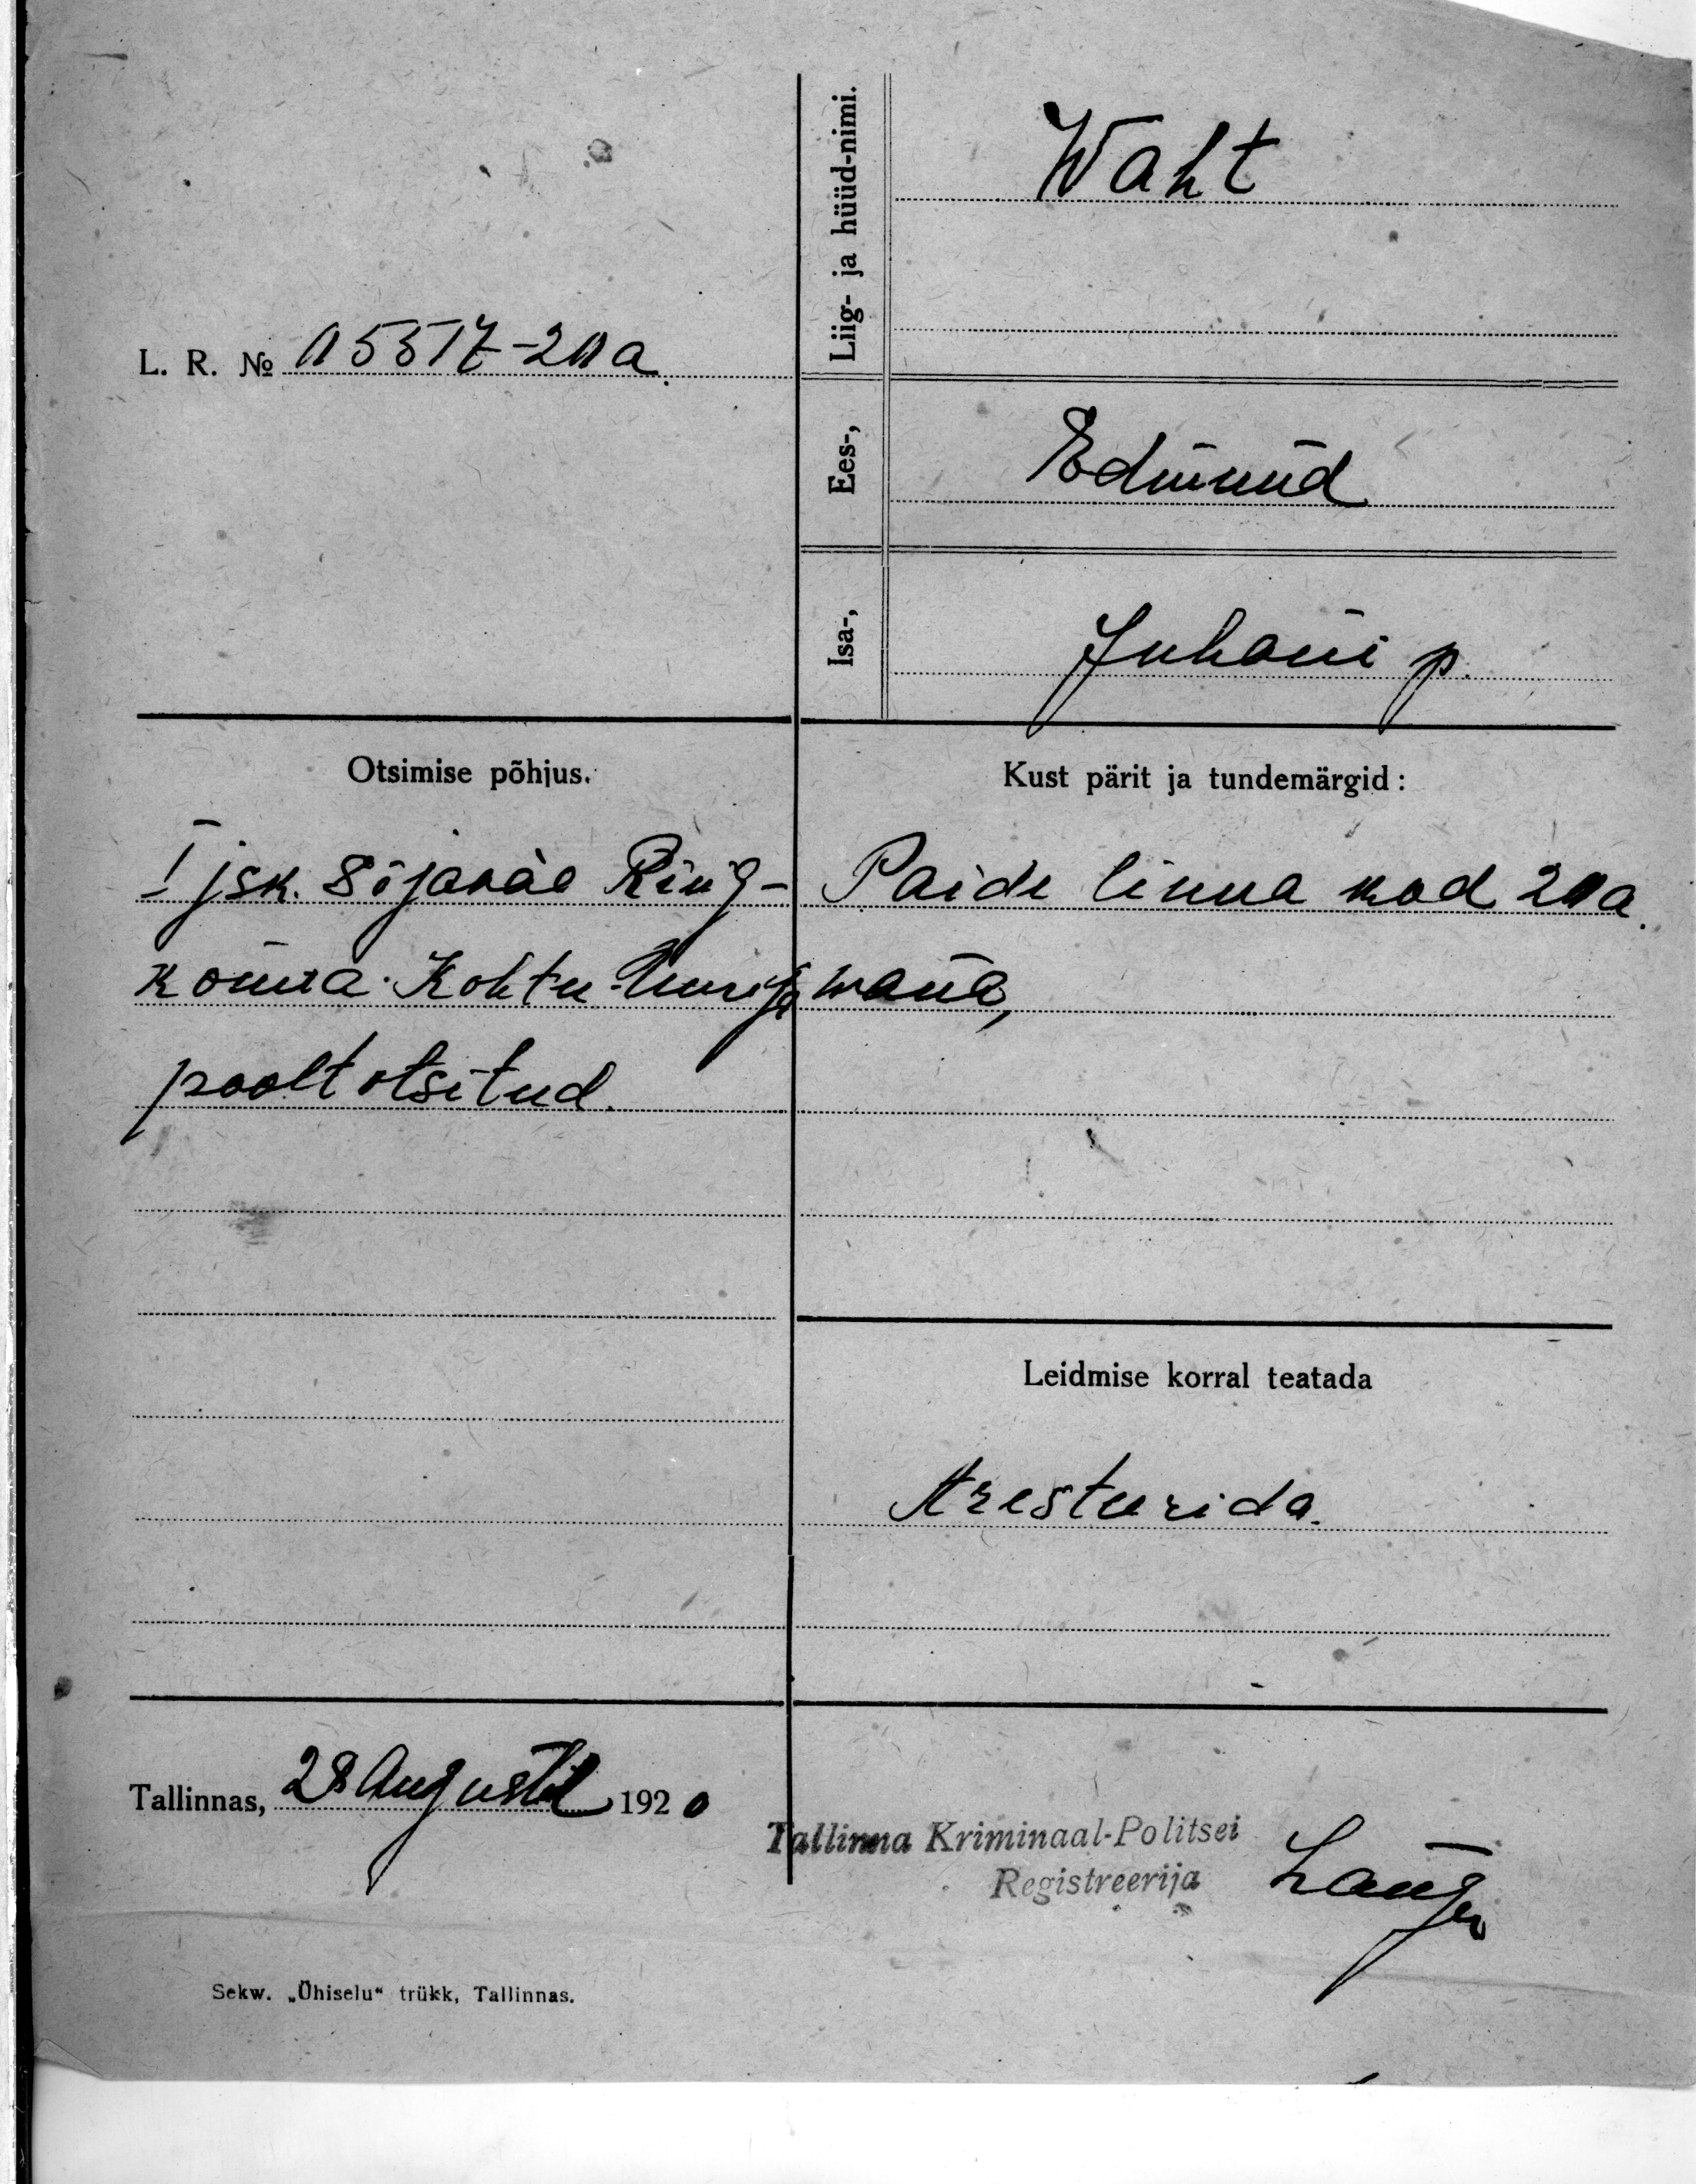 Liig- ja hüüd-nimi.
Waht
L. R. № 15517-20 a.
Ees-,
Edmund
Isa-,
Juhani p.
Otsimise põhjus.
I jsk. Sõjaväe Ring-
konna Kohtu-Uurija
poolt otsitud.
Kust pärit ja tundemärgid:
Paide linna kod 20 a.
wana,
Leidmise korral teatada
Aresteerida.
Tallinnas, 28 Augustil 1920
Tallinna Kriminaal-Politsei
Registreerija
Sekw. „Ühiselu“ trükk, Tallinnas.